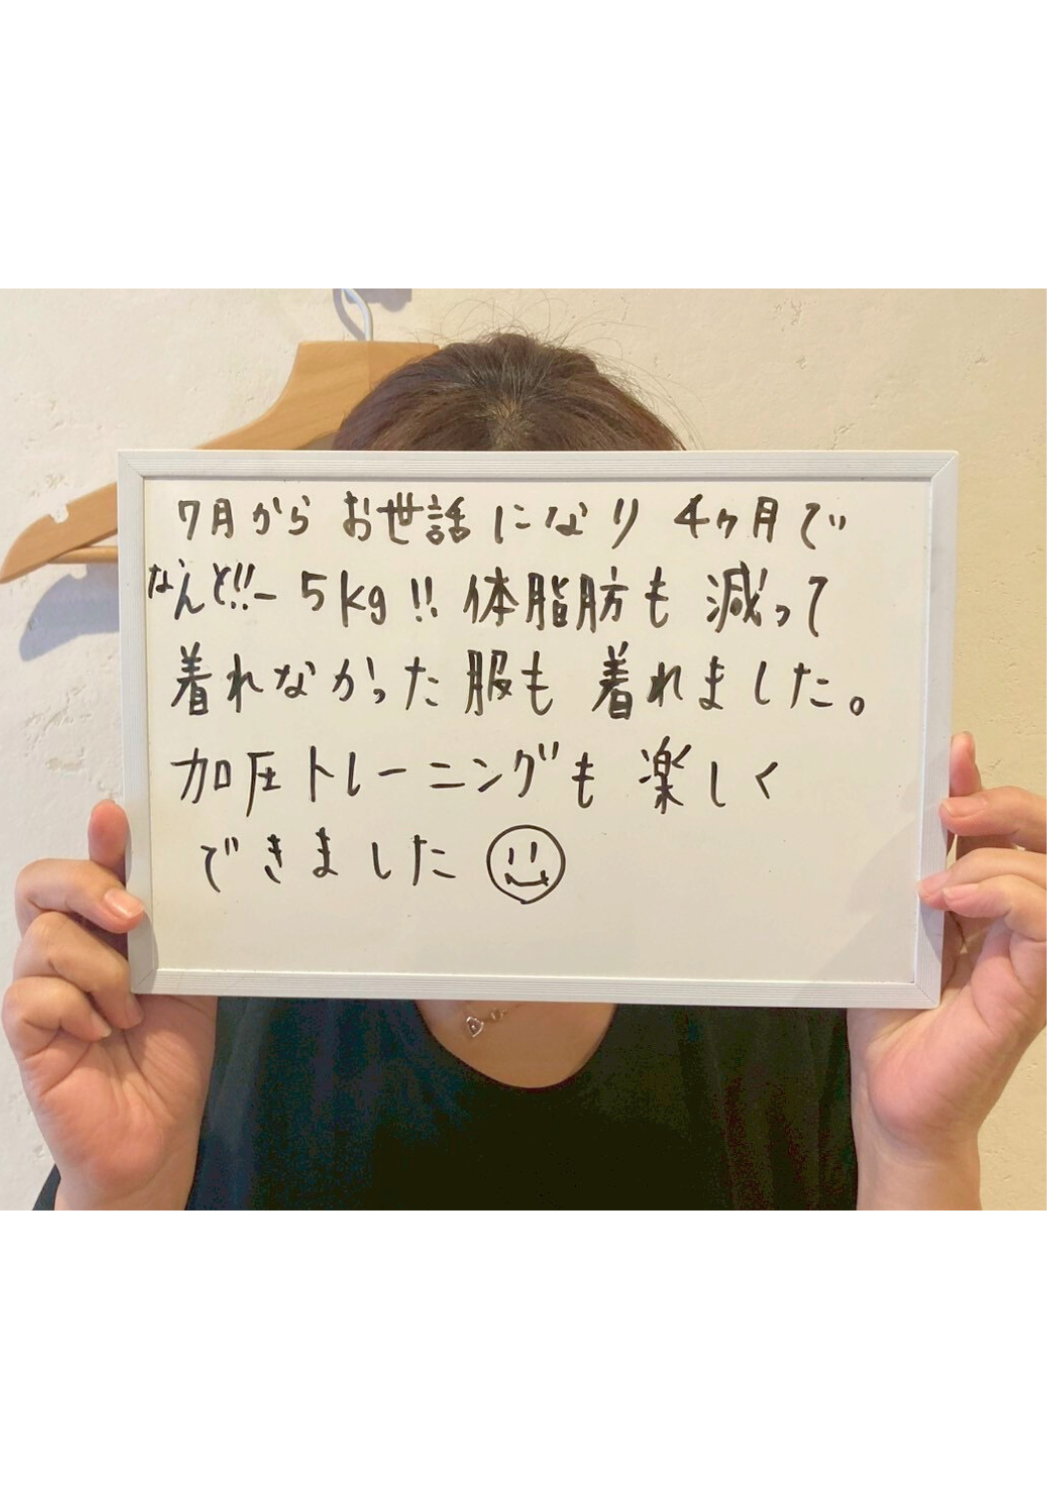 7月から お世話になり 4ヶ月で
なんと!!-5kg!! 体脂肪も 減って
着れなかった服も 着れました。
加圧トレーニングも 楽しく
できました